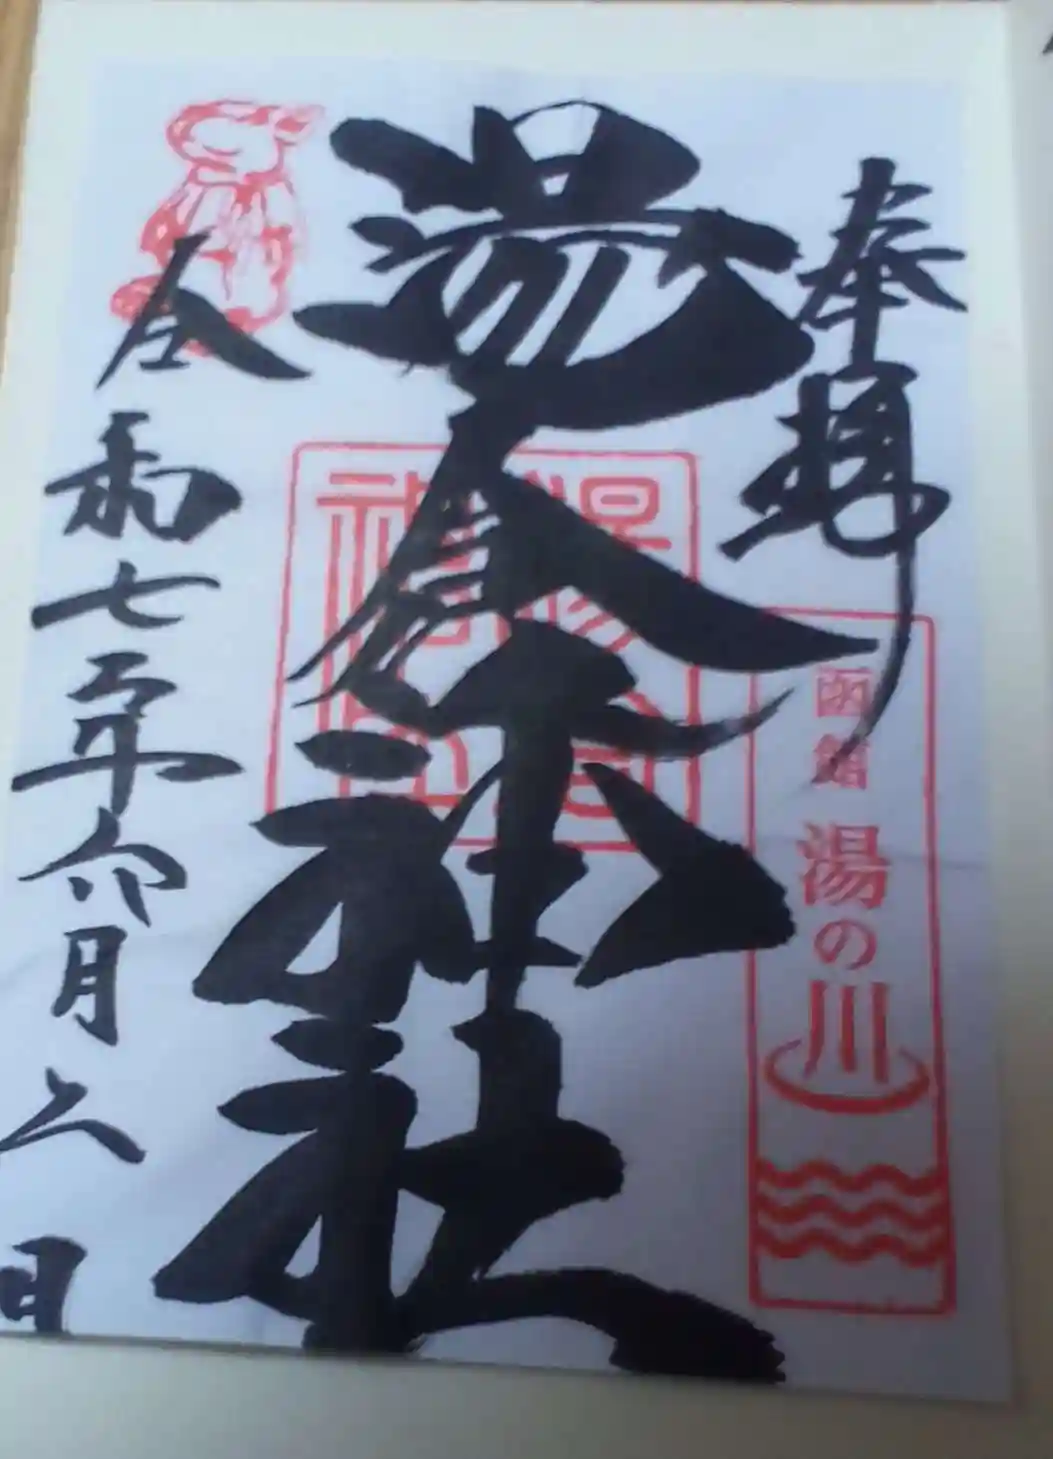 奉拝
函館 湯の川
湯倉神社
湯倉神社
令和七年六月二日